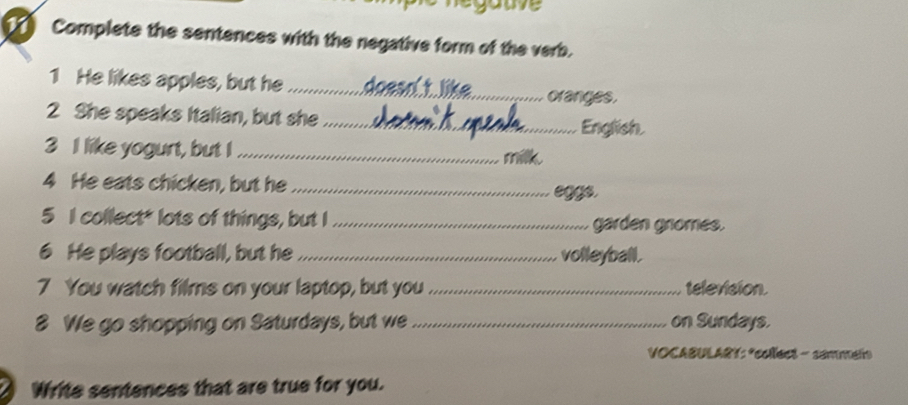 negative
11 Complete the sentences with the negative form of the verb.
1 He likes apples, but he doesn't like oranges.
2 She speaks Italian, but she doesn't speak English.
3 I like yogurt, but I ______ milk.
4 He eats chicken, but he ______ eggs.
5 I collect* lots of things, but I ______ garden gnomes.
6 He plays football, but he ______ volleyball.
7 You watch films on your laptop, but you ______ television.
8 We go shopping on Saturdays, but we ______ on Sundays.
VOCABULARY: *collect – sammeln
Write sentences that are true for you.